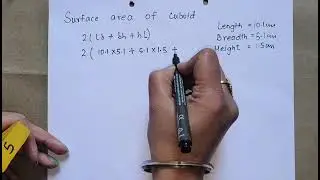 Surface area of Cuboid
2 ( lb + bh + hl )
2 ( 10.1 x 5.1 + 5.1 x 1.5 +
Length = 10.1cm
Breadth = 5.1cm
Height = 1.5cm
5